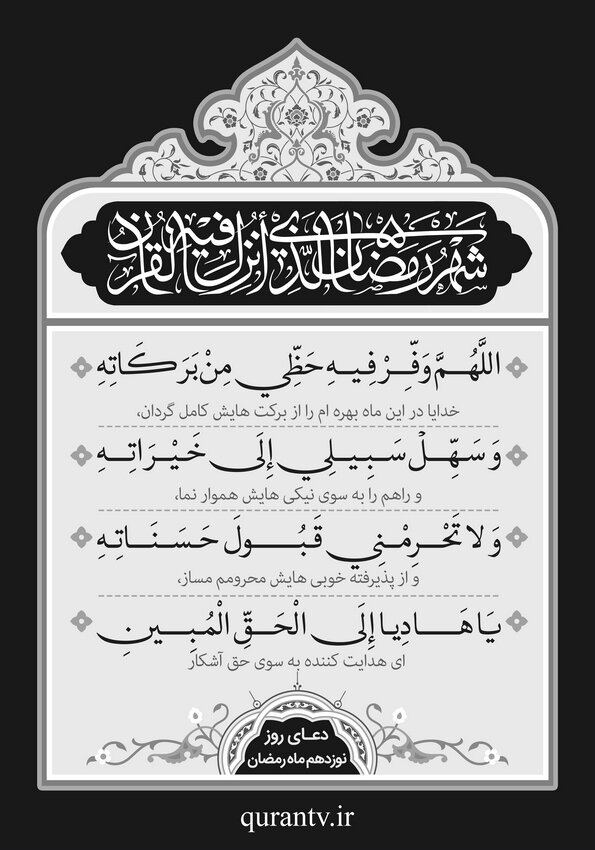 شَهْرُ رَمَضَانَ الَّذِي أُنْزِلَ فِيهِ الْقُرْآنُ
اللَّهُمَّ وَفِّرْ فِيهِ حَظِّي مِنْ بَرَكَاتِهِ
خدایا در این ماه بهره ام را از برکت هایش کامل گردان،
وَسَهِّلْ سَبِيلِي إِلَى خَيْرَاتِهِ
و راهم را به سوی نیکی هایش هموار نما،
وَلا تَحْرِمْنِي قَبُولَ حَسَنَاتِهِ
و از پذیرفته خوبی هایش محرومم مساز،
يَا هَادِيا إِلَى الْحَقِّ الْمُبِينِ
ای هدایت کننده به سوی حق آشکار
دعای روز
نوزدهم ماه رمضان
qurantv.ir